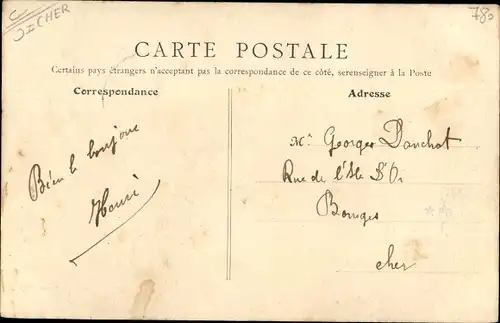 CHER
78
CARTE POSTALE
Certains pays étrangers n'acceptant pas la correspondance de ce côté, serenseigner à la Poste
Correspondance
Adresse
Bien le bonjour
Henri
Mr. Georges Danchot
Rue de l'Isle d'Or
Bourges
cher